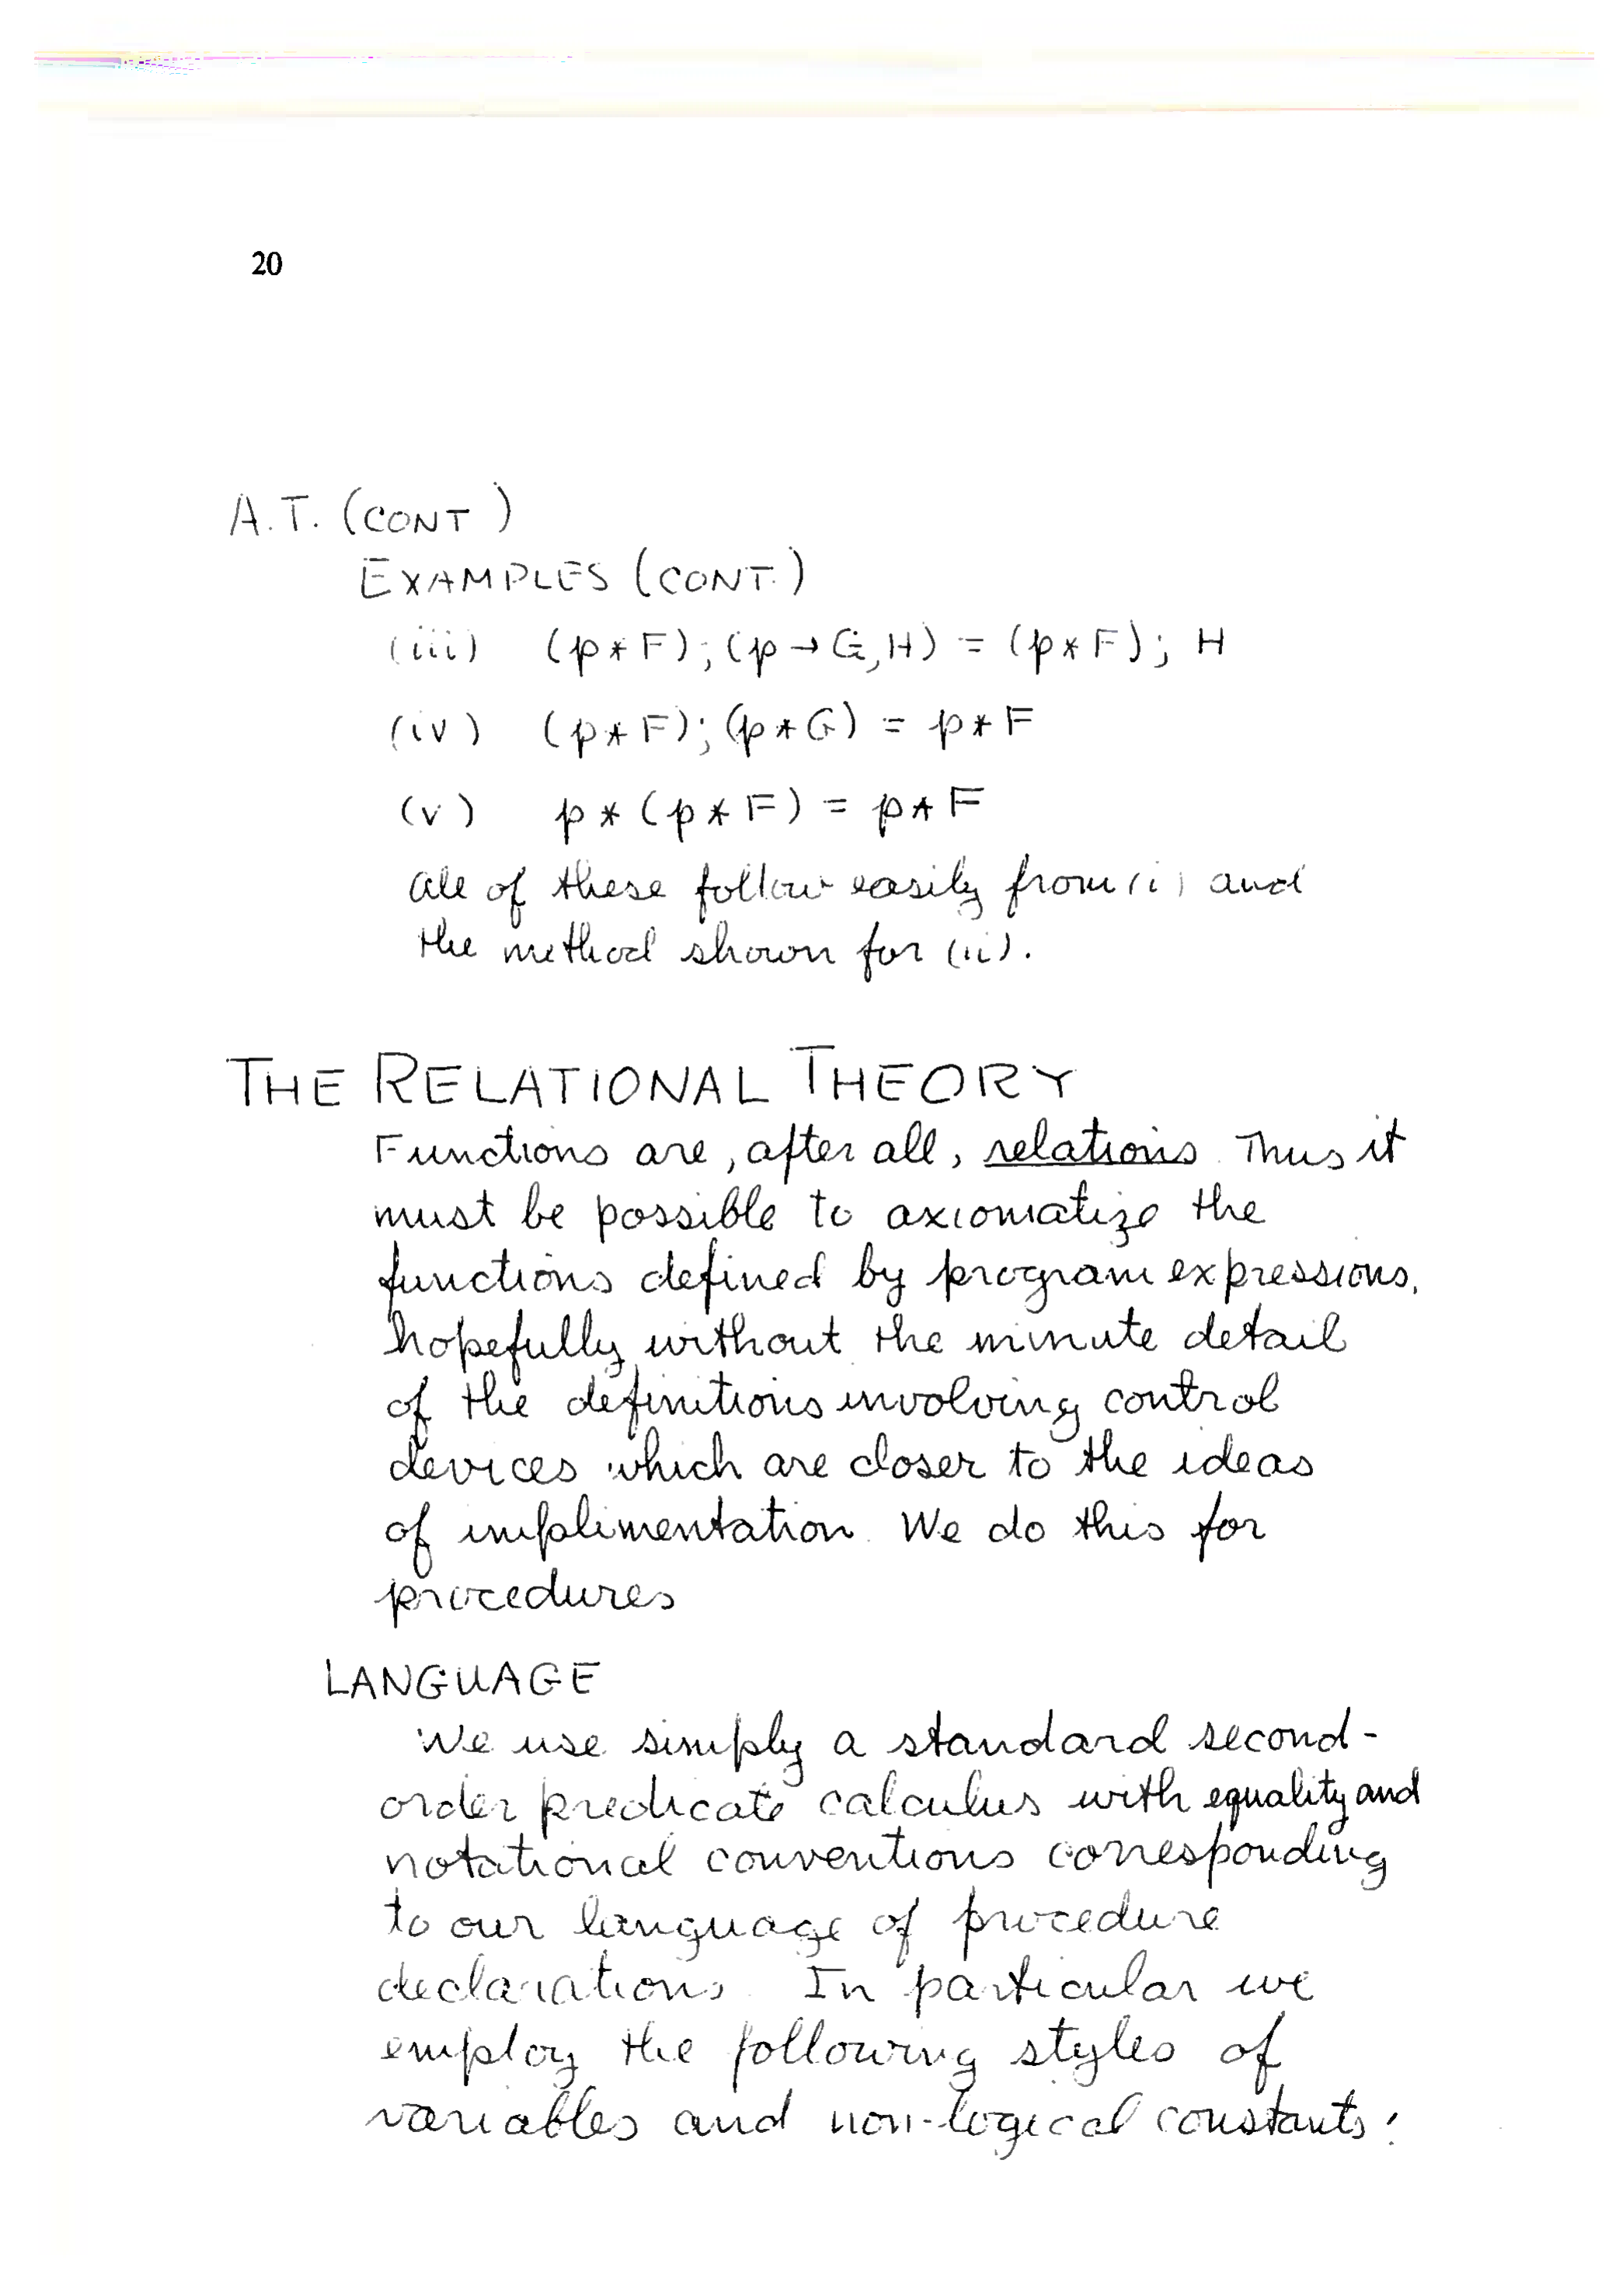 20
A.T. (CONT)
EXAMPLES (CONT.)
(iii) (p * F); (p → G, H) = (p * F); H
(iv) (p * F); (p * G) = p * F
(v) p * (p * F) = p * F
All of these follow easily from (i) and
the method shown for (ii).
THE RELATIONAL THEORY
Functions are, after all, relations. Thus it
must be possible to axiomatize the
functions defined by program expressions,
hopefully without the minute detail
of the definitions involving control
devices which are closer to the ideas
of implimentation. We do this for
procedures
LANGUAGE
We use simply a standard second-
order predicate calculus with equality and
notational conventions corresponding
to our language of procedure
declarations. In particular we
employ the following styles of
variables and non-logical constants: